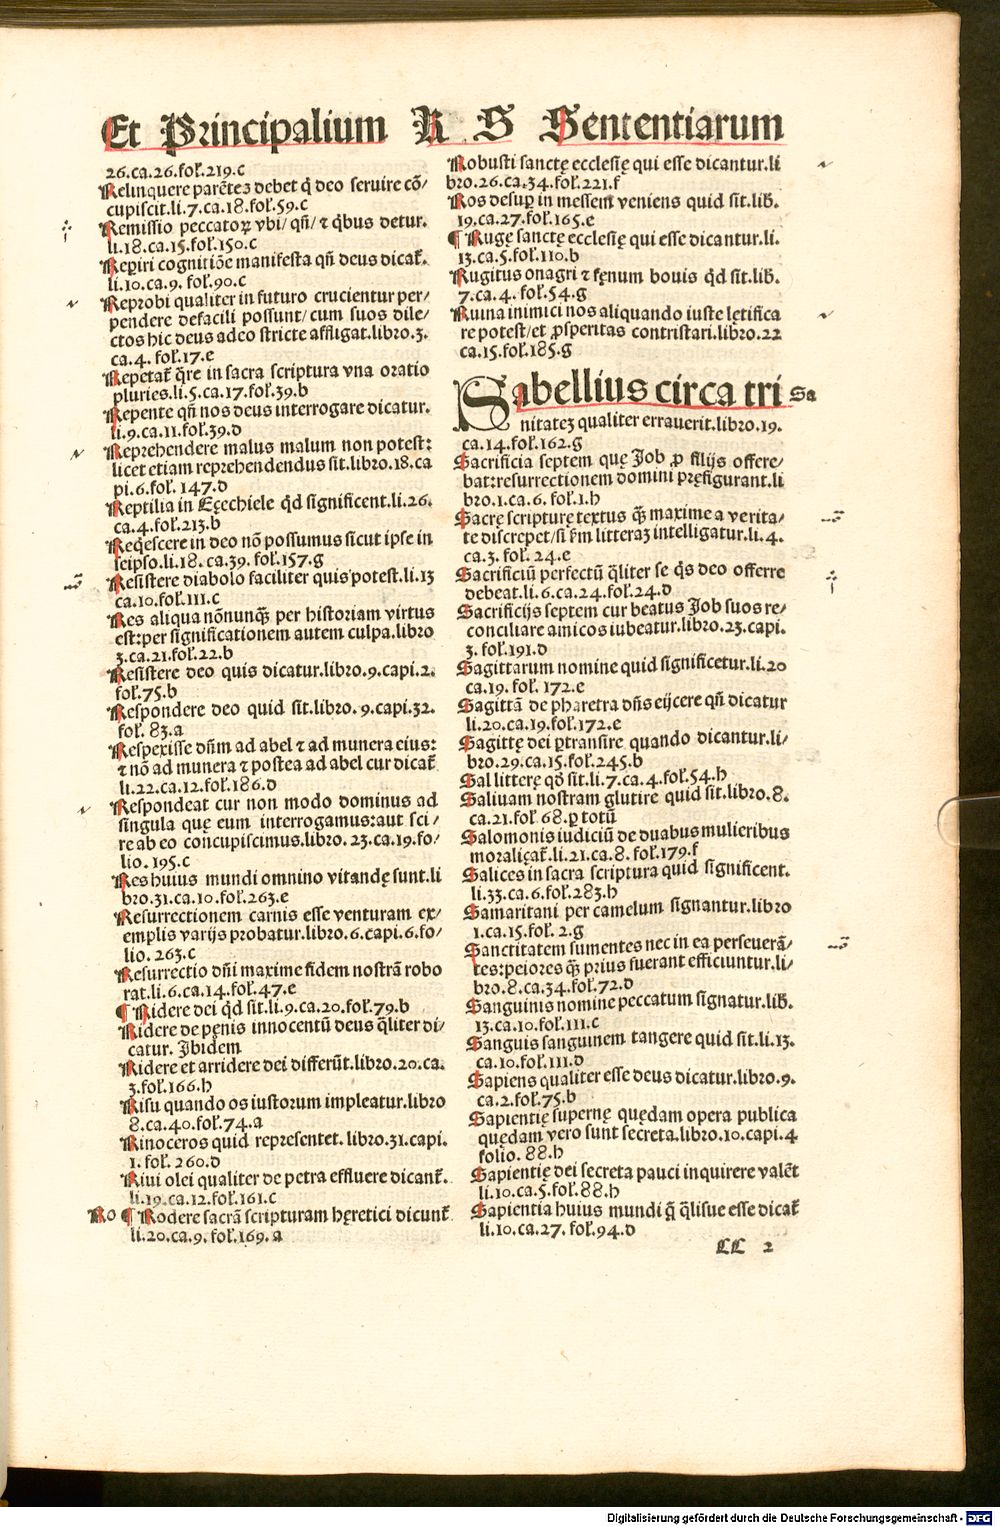 Et Principalium R S Sententiarum
26.ca.26.fol̃.219.c
Relinquere parẽtez debet q̃ deo seruire cõ/
cupiscit.li.7.ca.18.fol̃.59.c
Remissio peccatoꝝ vbi/ qñ/ ⁊ q̃bus detur.
li.18.ca.15.fol̃.150.c
Reꝑiri cognitiõe manifesta qñ deus dicat̃.
li.10.ca.9. fol̃.90.c
Reprobi qualiter in futuro crucientur per/
pendere defacili possunt/ cum suos dile/
ctos hic deus adeo stricte affligat.libro.3.
ca.4. fol̃.17.e
Repetat̃ q̃re in sacra scriptura vna oratio
pluries.li.5.ca.17.fol̃.39.b
Repente qñ nos deus interrogare dicatur.
li.9.ca.11.fol̃.39.d
Reprehendere malus malum non potest:
licet etiam reprehendendus sit.libro.18.ca
pi.6.fol̃. 147.d
Reptilia in Eȩechiele q̃d significent.li.26.
ca.4.fol̃.213.b
Req̃escere in deo nõ possumus sicut ipse in
seipso.li.18. ca.39. fol̃.157.g
Resistere diabolo faciliter quis potest.li.13
ca.10.fol̃.111.c
Res aliqua nõnunq̃ȝ per historiam virtus
est:per significationem autem culpa.libro
3.ca.21.fol̃.22.b
Resistere deo quis dicatur.libro.9.capi.2.
fol̃.75.b
Respondere deo quid sit.libro.9.capi.32.
fol̃. 83.a
Respexisse dñm ad abel ⁊ ad munera eius:
⁊ nõ ad munera ⁊ postea ad abel cur dicat̃
li.22.ca.12.fol̃.186.d
Respondeat cur non modo dominus ad
singula quę eum interrogamus:aut sci/
re ab eo concupiscimus.libro. 23.ca.19.fo/
lio. 195.c
Res huius mundi omnino vitandę sunt.li
bro.31.ca.10.fol̃.263.e
Resurrectionem carnis esse venturam ex/
emplis varijs probatur.libro.6.capi.6.fo/
lio. 263.c
Resurrectio dñi maxime fidem nostrã robo
rat.li.6.ca.14.fol̃.47.e
¶ Ridere dei q̃d sit.li.9.ca.20.fol̃.79.b
Ridere de pęnis innocentũ deus q̃liter di/
catur. Ibidem
Ridere et arridere dei differũt.libro.20.ca.
3.fol̃.166.h
Risu quando os iustorum impleatur.libro
8.ca.40.fol̃.74.a
Rinoceros quid representet. libro.31.capi.
1. fol̃. 260.d
Riui olei qualiter de petra effluere dicant̃.
li.19.ca.12.fol̃.161.c
Ro ¶ Rodere sacrã scripturam hęretici dicunt̃
li.20.ca.9. fol̃.169.a
Robusti sanctę ecclesię qui esse dicantur.li
bro.26.ca.34.fol̃.221.f
Ros desuꝑ in messem veniens quid sit.lib̃.
19.ca.27.fol̃.165.e
¶ Rugę sanctę ecclesię qui esse dicantur.li.
13.ca.5.fol̃.110.b
Rugitus onagri ⁊ fęnum bouis q̃d sit.lib̃.
7.ca.4. fol̃.54.g
Ruina inimici nos aliquando iuste lętifica
re potest/et ꝓsperitas contristari.libro.22
ca.15.fol̃.185.g
Sabellius circa tri Sa
nitatez qualiter errauerit.libro.19.
ca.14.fol̃.162.g
Sacrificia septem quę Job ꝓ filijs offere/
bat:resurrectionem domini pręfigurant.li
bro.1.ca.6. fol̃.1.h
Sacrę scripturę textus q̃ȝ maxime a verita/
te discrepet/si s̃m litteraȝ intelligatur.li.4.
ca.3. fol̃. 24.e
Sacrificiũ perfectũ q̃liter se q̃s deo offerre
debeat.li.6.ca.24.fol̃.24.d
Sacrificijs septem cur beatus Job suos re/
conciliare amicos iubeatur.libro.23.capi.
3. fol̃.191.d
Sagittarum nomine quid significetur.li.20
ca.19. fol̃. 172.e
Sagittã de pharetra dñs eijcere qñ dicatur
li.20.ca.19.fol̃.172.e
Sagittę dei ꝑtransire quando dicantur.li/
bro.29.ca.15.fol̃.245.b
Sal litterę qõ sit.li.7.ca.4.fol̃.54.h
Saliuam nostram glutire quid sit.libro.8.
ca.21.fol̃.68.ꝑ totũ
Salomonis iudiciũ de duabus mulieribus
moraliȩat̃.li.21.ca.8. fol̃.179.f
Salices in sacra scriptura quid significent.
li.33.ca.6.fol̃.283.h
Samaritani per camelum signantur.libro
1.ca.15.fol̃. 2.g
Sanctitatem sumentes nec in ea perseuerã/
tes:peiores q̃ȝ prius fuerant efficiuntur.li/
bro.8.ca.34.fol̃.72.d
Sanguinis nomine peccatum signatur.lib̃.
13.ca.10.fol̃.111.c
Sanguis sanguinem tangere quid sit.li.13.
ca.10.fol̃.111.d
Sapiens qualiter esse deus dicatur.libro.9.
ca.2.fol̃.75.b
Sapientię supernę quędam opera publica
quędam vero sunt secreta.libro.10.capi.4
folio. 88.h
Sapientię dei secreta pauci inquirere valẽt
li.10.ca.5.fol̃.88.h
Sapientia huius mundi q̃ q̃lisue esse dicat̃
li.10.ca.27. fol̃.94.d
LL 2
Digitalisierung gefördert durch die Deutsche Forschungsgemeinschaft - DFG